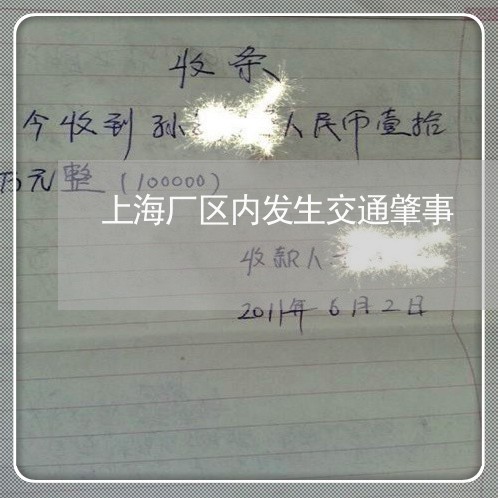 收条
今收到孙 人民币壹拾
万元整（100000）
上海厂区内发生交通肇事
收款人
2011年6月2日